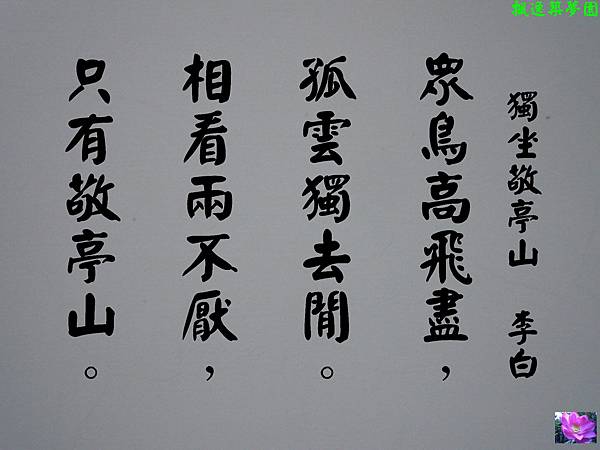 飄逸築夢園
獨坐敬亭山 李白
眾鳥高飛盡，
孤雲獨去閒。
相看兩不厭，
只有敬亭山。